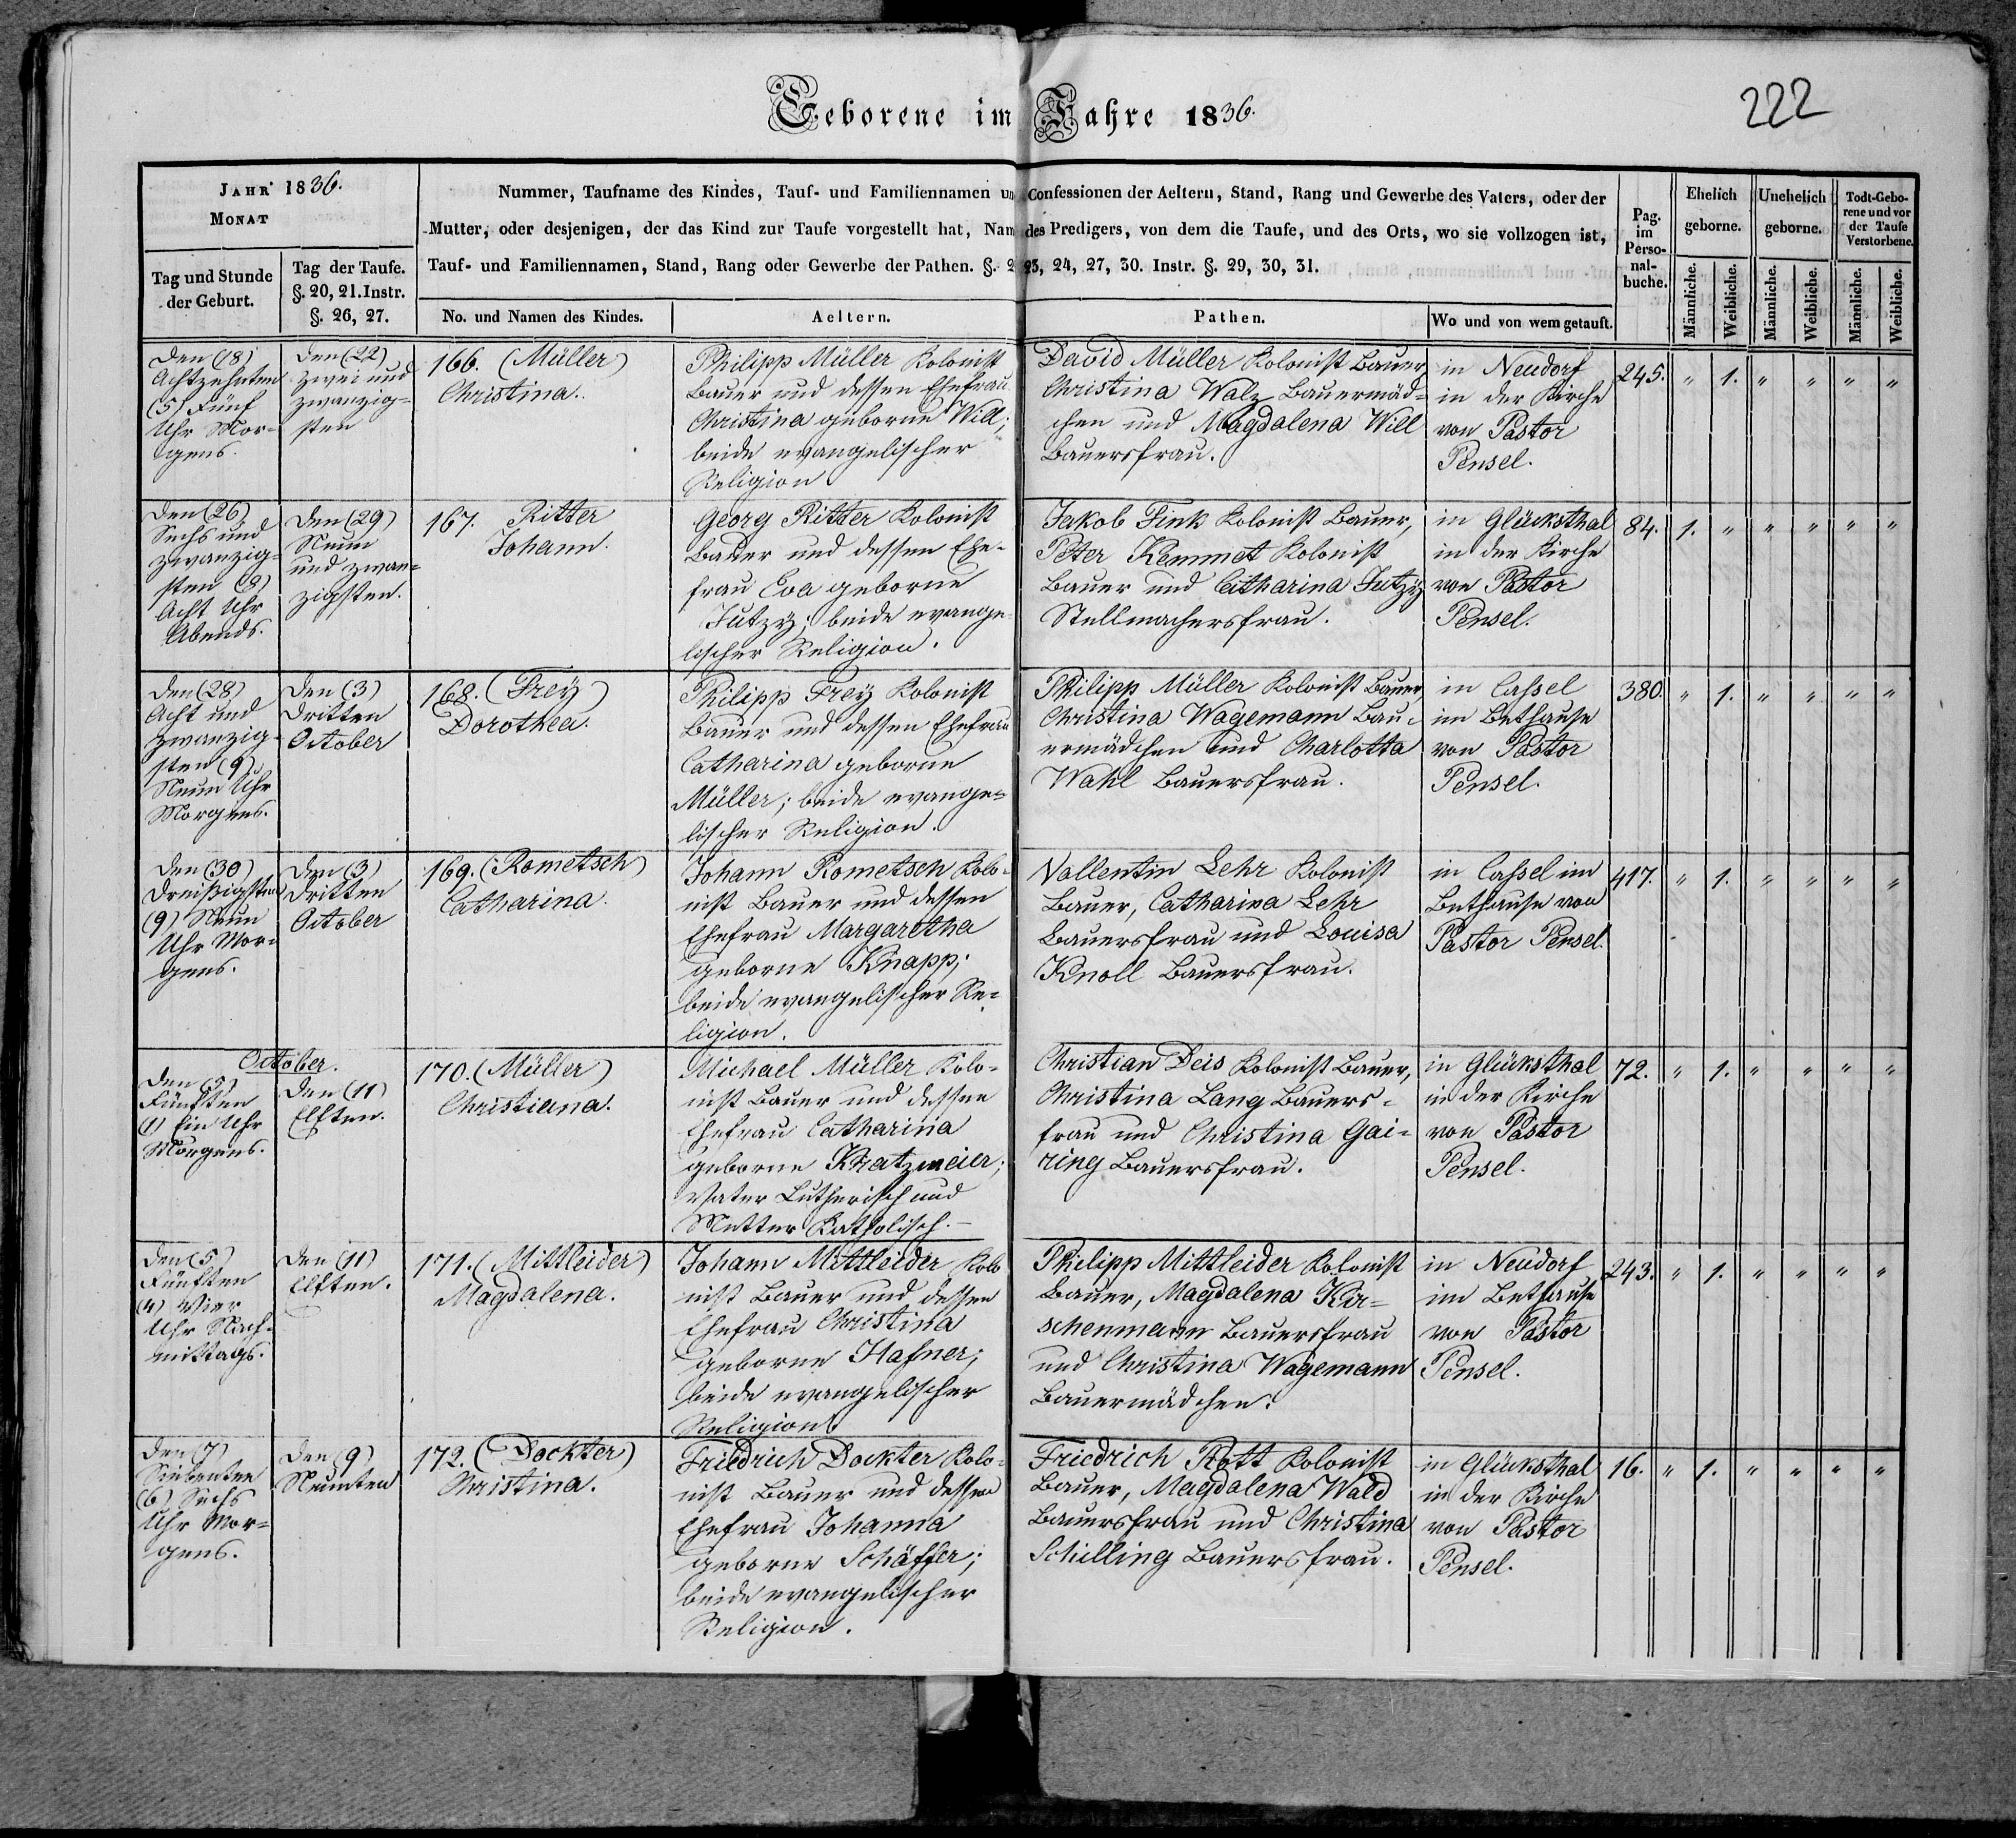 Geborene im Jahre 1836.
222
JAHR 1836.
MONAT
Tag und Stunde
der Geburt.
Tag der Taufe.
§. 20, 21. Instr.
§. 26, 27.
Nummer, Taufname des Kindes, Tauf- und Familiennamen un Confessionen der Aeltern, Stand, Rang und Gewerbe des Vaters, oder der
Mutter, oder desjenigen, der das Kind zur Taufe vorgestellt hat, Nam des Predigers, von dem die Taufe, und des Orts, wo sie vollzogen ist,
Tauf- und Familiennamen, Stand, Rang oder Gewerbe der Pathen. §. 2 23, 24, 27, 30. Instr. §. 29, 30, 31.
No. und Namen des Kindes.
Aeltern.
Pathen.
Wo und von wem getauft.
Pag.
im
Perso-
nal-
buche.
Ehelich
geborne.
Unehelich
geborne.
Todt-Gebo-
rene und vor
der Taufe
Verstorbene.
Männliche.
Weibliche.
Männliche.
Weibliche.
Männliche.
Weibliche.
Den (18)
Achtzehnten
(5) Fünf
Uhr Mor-
gens.
Den (22)
zwei und
zwanzig-
sten
166. (Müller)
Christina.
Philipp Müller Kolonist
Bauer und dessen Ehefrau
Christina geborne Will;
beide evangelischer
Religion
David Müller Kolonist Bauer
Christina Walz Bauermäd-
chen und Magdalena Will
Bauersfrau.
in Neudorf
in der Kirche
von Pastor
Pensel.
245. " 1. " " " "
Den (26)
Sechs und
zwanzig-
sten (8)
Acht Uhr
Abends.
Den (29)
Neun
und zwan-
zigsten.
167. Ritter
Johann.
Georg Ritter Kolonist
Bauer und dessen Ehe-
frau Eva geborne
Jutzy; beide evange-
lischer Religion.
Jakob Fink Kolonist Bauer,
Peter Kemmet Kolonist
Bauer und Catharina Jutzy
Stellmachersfrau.
in Glücksthal
in der Kirche
von Pastor
Pensel.
84. 1. " " " " "
Den (28)
Acht und
zwanzig-
sten (9)
Neun Uhr
Morgens.
Den (3)
Dritten
October
168. (Frey)
Dorothea.
Philipp Frey Kolonist
Bauer und dessen Ehefrau
Catharina geborne
Müller; beide evange-
lischer Religion.
Philipp Müller Kolonist Bauer
Christina Wagemann Bau-
ermädchen und Charlotta
Wahl Bauersfrau.
in Cassel
im Bethause
von Pastor
Pensel.
380. " 1. " " " "
Den (30)
Dreißigsten
(9) Neun
Uhr Mor-
gens.
Den (3)
Dritten
October
169. (Rometsch)
Catharina.
Johann Rometsch Kolo-
nist Bauer und dessen
Ehefrau Margaretha
geborne Knapp;
beide evangelischer Re-
ligion.
Vallentin Lehr Kolonist
Bauer, Catharina Lehr
Bauersfrau und Louisa
Knoll Bauersfrau.
in Cassel im
Bethause von
Pastor Pensel.
417. " 1. " " " "
October.
Den (5)
Fünften
(1) Ein Uhr
Morgens.
Den (11)
Elften.
170. (Müller)
Christiana.
Michael Müller Kolo-
nist Bauer und dessen
Ehefrau Catharina
geborne Kratzmeier;
Vater Lutherisch und
Mutter Katholisch.-
Christian Deis Kolonist Bauer,
Christina Lang Bauers-
frau und Christina Gai-
ring Bauersfrau.
in Glücksthal
in der Kirche
von Pastor
Pensel.
72. " 1. " " " "
Den (5)
Fünften
(4) Vier
Uhr Nach-
mittags.
Den (11)
Elften.
171. (Mittleider)
Magdalena.
Johann Mittleider Kolo
nist Bauer und dessen
Ehefrau Christina
geborne Hafner;
beide evangelischer
Religion.
Philipp Mittleider Kolonist
Bauer, Magdalena Kir-
schenmann Bauersfrau
und Christina Wagemann
Bauermädchen.
in Neudorf
im Bethause
von Pastor
Pensel.
243. " 1. " " " "
Den (7)
Siebenten
(6) Sechs
Uhr Mor-
gens.
Den (9)
Neunten
172. (Dockter)
Christina.
Friedrich Dockter Kolo-
nist Bauer und dessen
Ehefrau Johanna
geborne Schäffer;
beide evangelischer
Religion.
Friedrich Rott Kolonist
Bauer, Magdalena Wald
Bauersfrau und Christina
Schilling Bauersfrau.
in Glücksthal
in der Kirche
von Pastor
Pensel.
16. " 1. " " " "